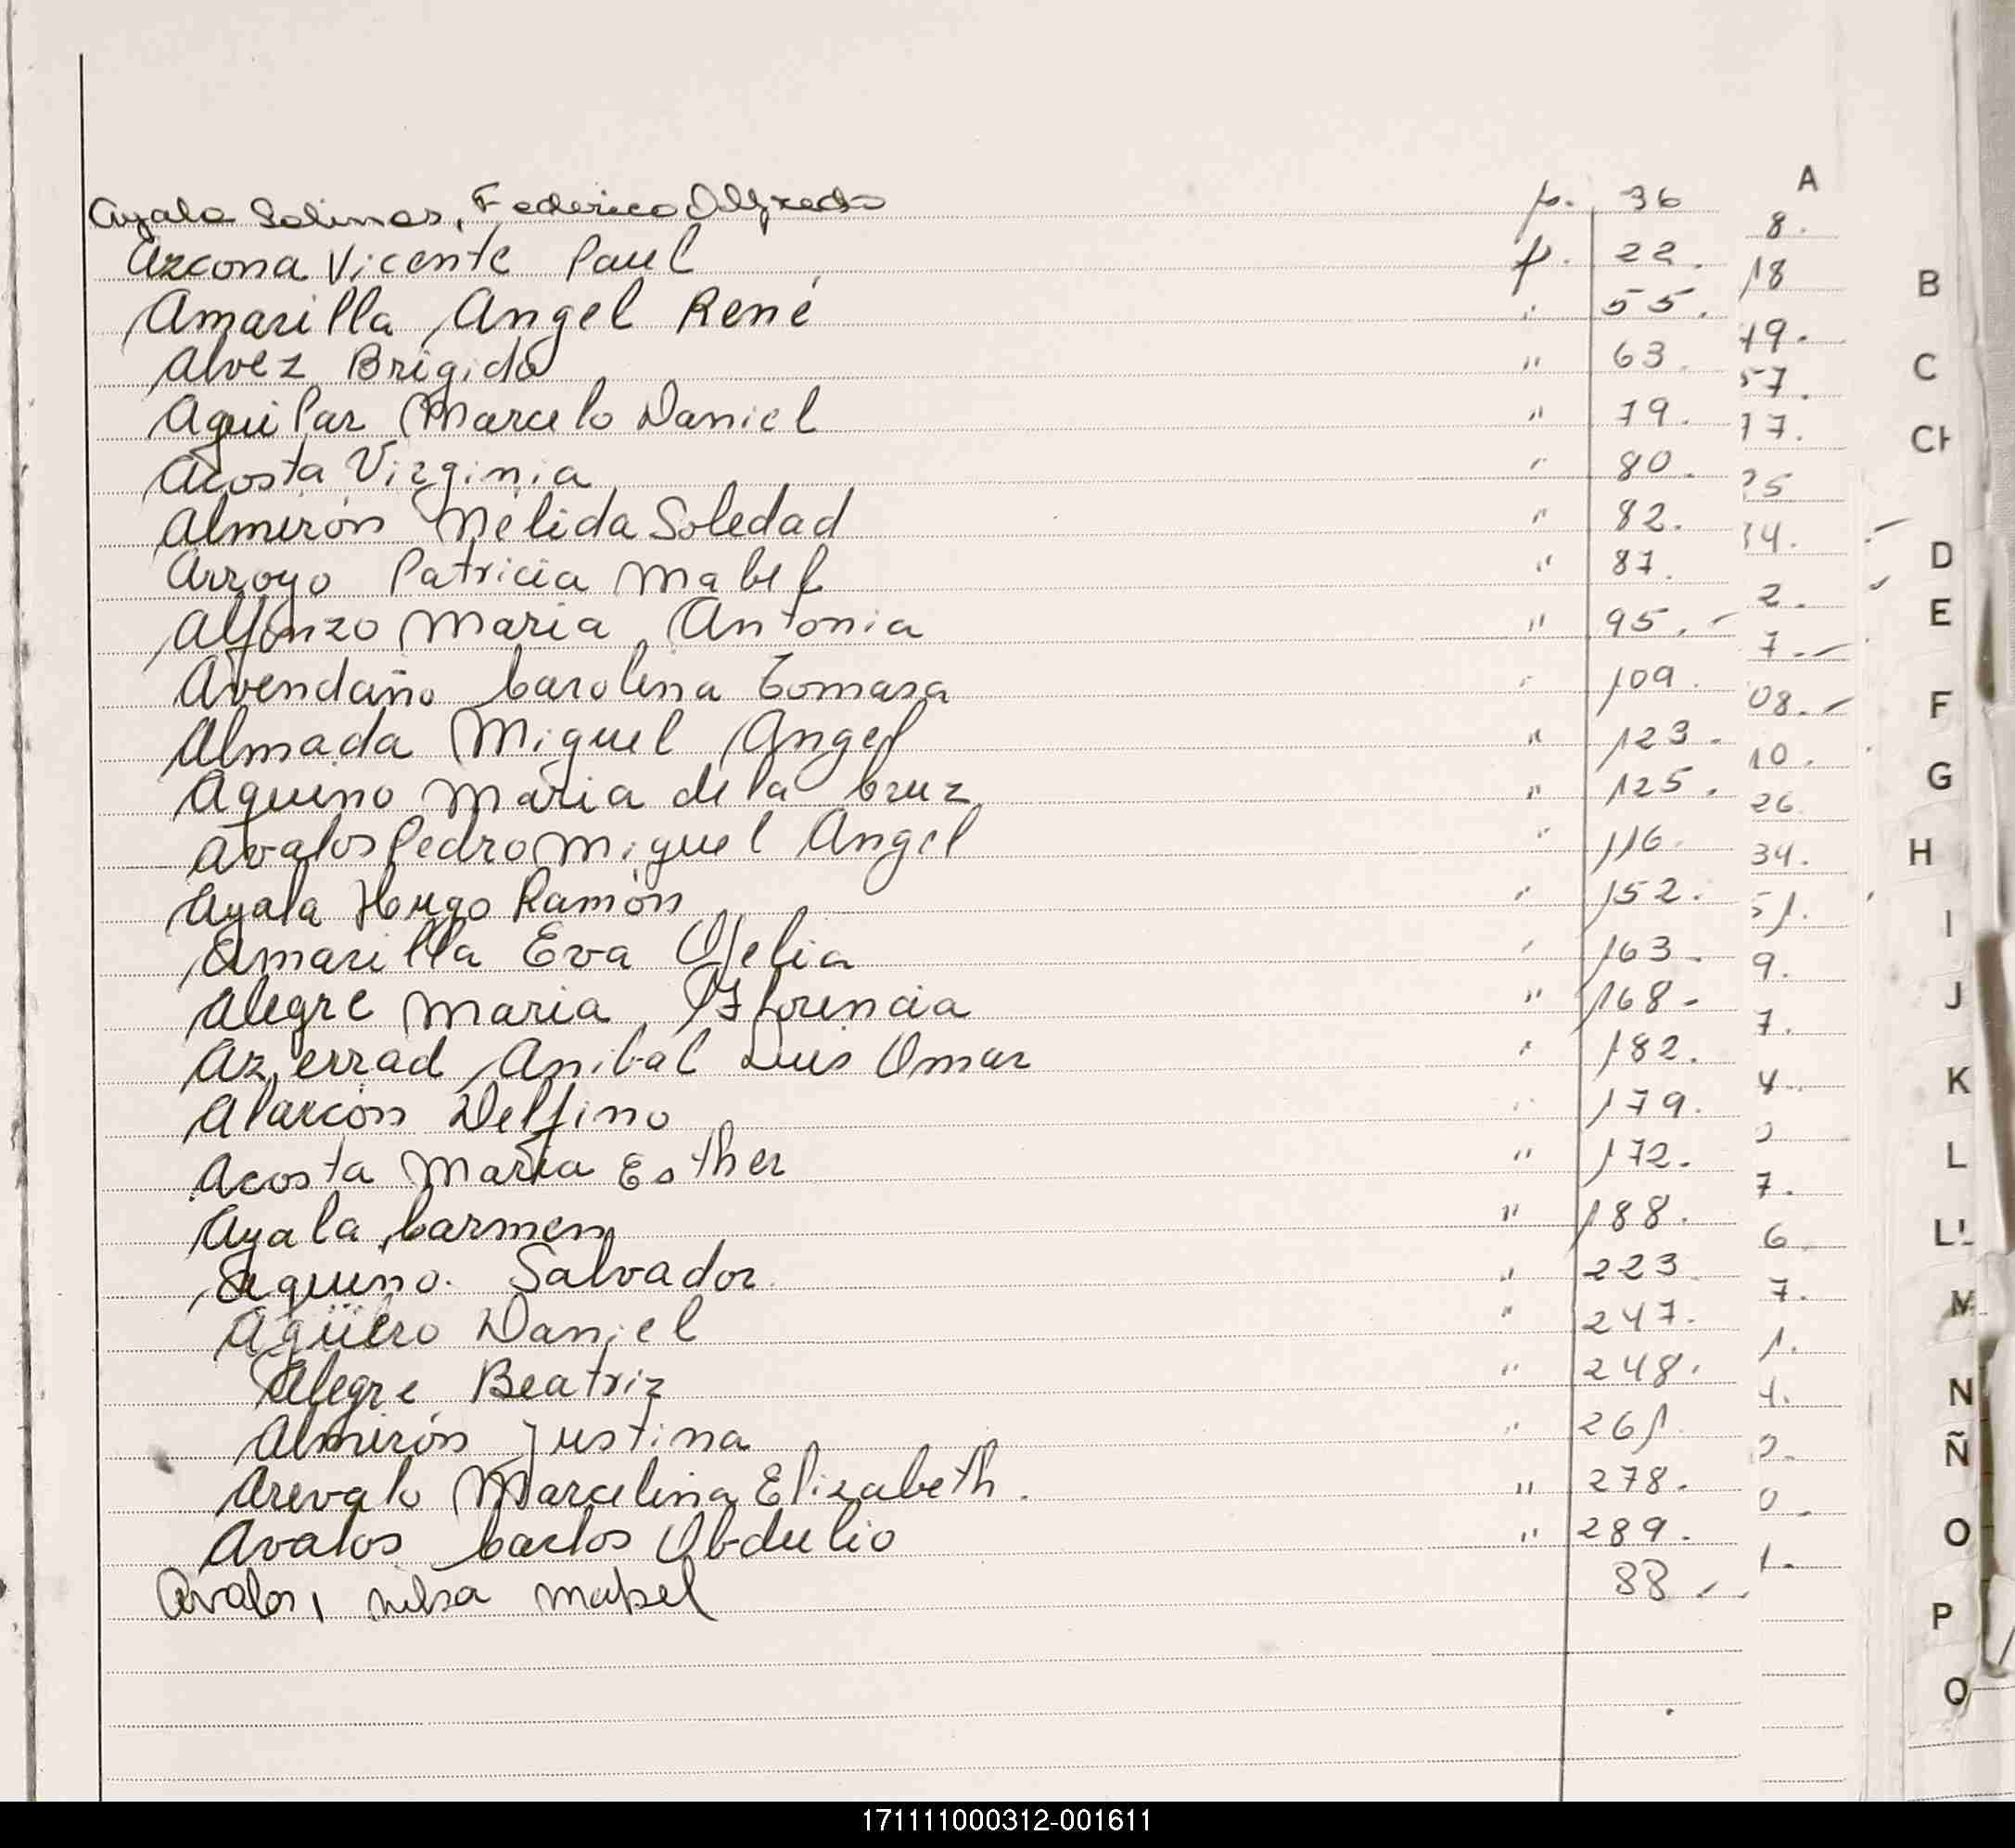 A
Ayala Salinas, Federico Alfredo p. 36
Azcona Vicente Paul p. 22.
Amarilla Angel René " 55.
Alvez Brígida " 63.
Aguilar Marcelo Daniel " 79.
Acosta Virginia " 80.
Almirón Nélida Soledad " 82.
Arroyo Patricia Mabel " 87.
Alfonzo Maria Antonia " 95.
Avendaño Carolina Tomasa " 109.
Almada Miguel Angel " 123.
Aquino Maria de la Cruz " 125.
Avalos Pedro Miguel Angel " 116.
Ayala Hugo Ramón " 152.
Amarilla Eva Ofelia " 163.
Alegre Maria Florencia " 168.
Azerrad Anibal Luis Omar " 182.
Alarcón Delfino " 179.
Acosta María Esther " 172.
Ayala Carmen " 188.
Aquino Salvador " 223.
Agüero Daniel " 247.
Alegre Beatriz " 248.
Almirón Justina " 261.
Arevalo Marcelina Elizabeth. " 278.
Avalos Carlos Obdulio " 289.
Avalos, Nilsa Mabel 88
8.
18
19.
57.
17.
25
34.
2.
7.
08.
10.
26.
34.
51.
9.
7.
4.
7.
6
7.
1.
4.
0.
1.
B
C
CH
D
E
F
G
H
I
J
K
L
LL
M
N
Ñ
O
P
Q
171111000312-001611